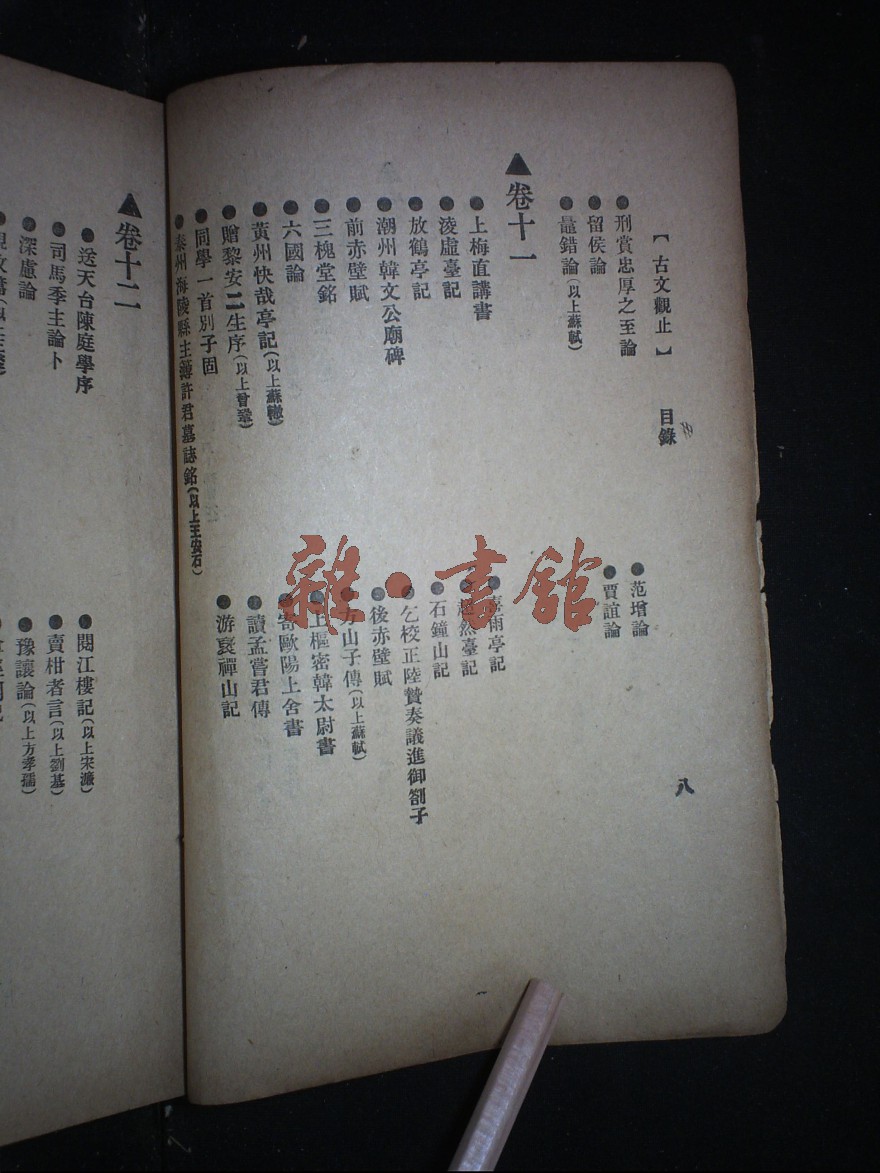 【古文觀止】 目錄 八
●刑賞忠厚之至論 ●范增論
●留侯論 ●賈誼論
●鼂錯論(以上蘇軾)
▲卷十一
●上梅直講書 ●喜雨亭記
●淩虛臺記 ●超然臺記
●放鶴亭記 ●石鐘山記
●潮州韓文公廟碑 ●乞校正陸贄奏議進御劄子
●前赤壁賦 ●後赤壁賦
●三槐堂銘 ●方山子傳(以上蘇軾)
●六國論 ●上樞密韓太尉書
●黃州快哉亭記(以上蘇轍) ●寄歐陽上舍書
●贈黎安二生序(以上曾鞏) ●讀孟嘗君傳
●同學一首別子固 ●游褒禪山記
●泰州海陵縣主薄許君墓誌銘(以上王安石)
▲卷十二
●送天台陳庭學序 ●閱江樓記(以上宋濂)
●司馬季主論卜 ●賣柑者言(以上劉基)
●深慮論 ●豫讓論(以上方孝孺)
雜·書館